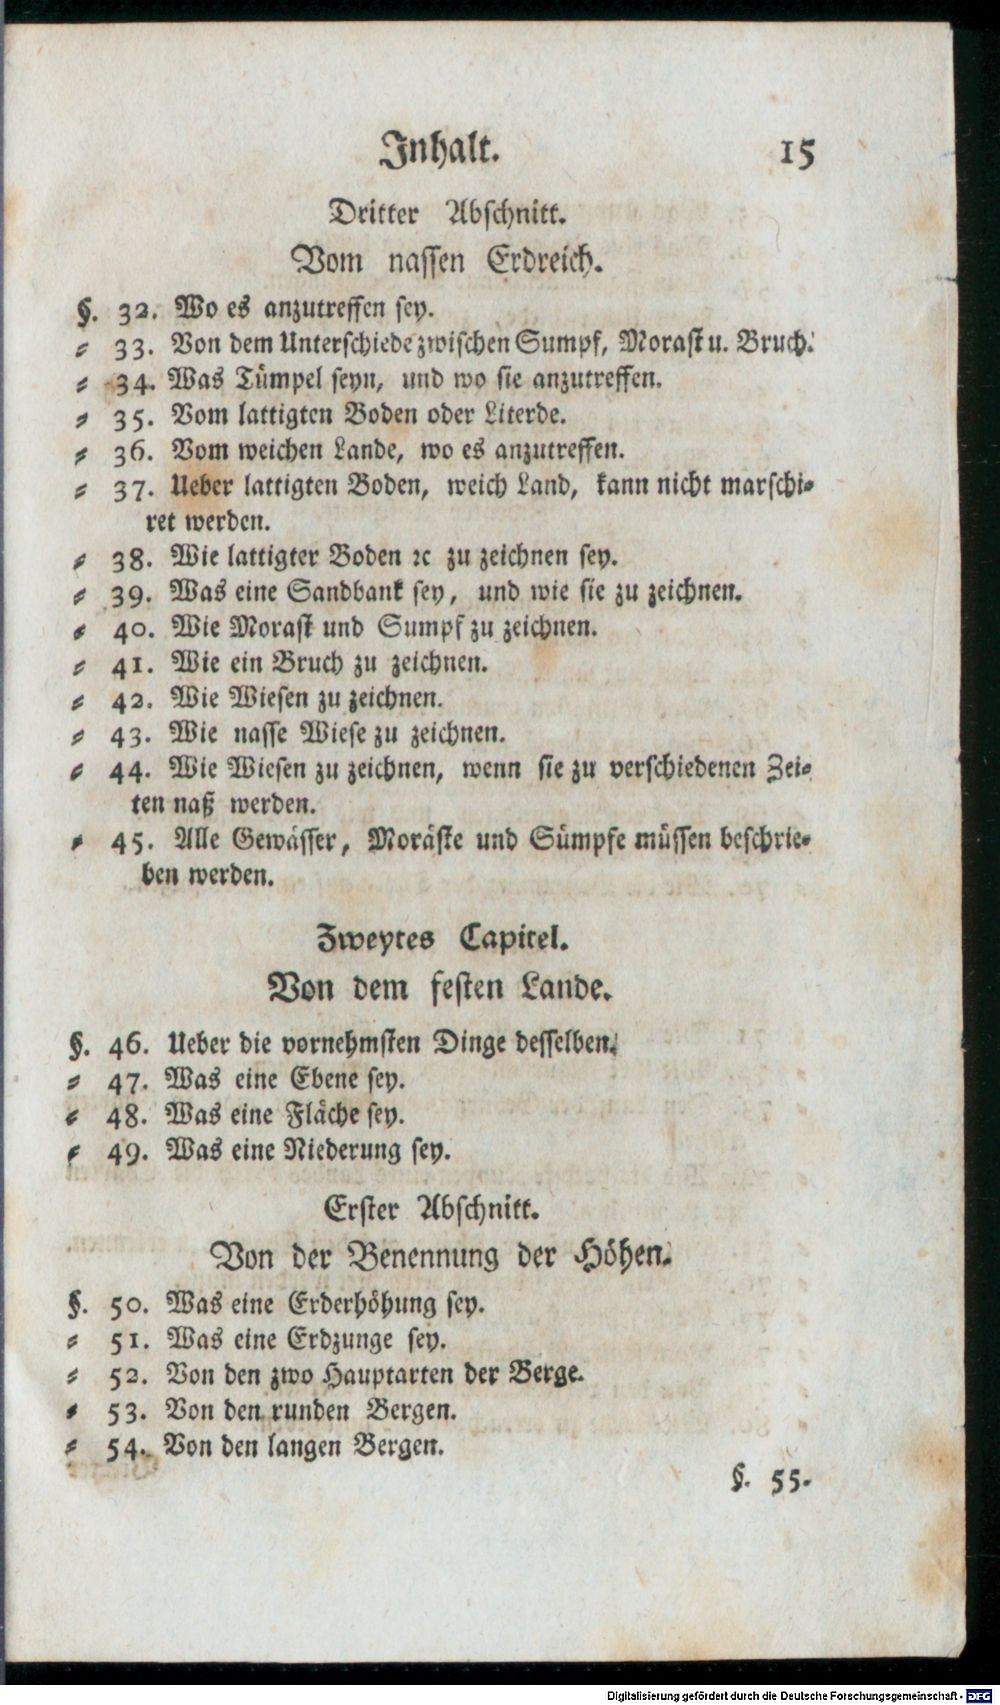 Inhalt. 15
Dritter Abschnitt.
Vom nassen Erdreich.
§. 32. Wo es anzutreffen sey.
⸗ 33. Von dem Unterschiede zwischen Sumpf, Morast u. Bruch.
⸗ 34. Was Tümpel seyn, und wo sie anzutreffen.
⸗ 35. Vom lattigten Boden oder Literde.
⸗ 36. Vom weichen Lande, wo es anzutreffen.
⸗ 37. Ueber lattigten Boden, weich Land, kann nicht marschi⸗
ret werden.
⸗ 38. Wie lattigter Boden ꝛc zu zeichnen sey.
⸗ 39. Was eine Sandbank sey, und wie sie zu zeichnen.
⸗ 40. Wie Morast und Sumpf zu zeichnen.
⸗ 41. Wie ein Bruch zu zeichnen.
⸗ 42. Wie Wiesen zu zeichnen.
⸗ 43. Wie nasse Wiese zu zeichnen.
⸗ 44. Wie Wiesen zu zeichnen, wenn sie zu verschiedenen Zei⸗
ten naß werden.
⸗ 45. Alle Gewässer, Moräste und Sümpfe müssen beschrie⸗
ben werden.
Zweytes Capitel.
Von dem festen Lande.
§. 46. Ueber die vornehmsten Dinge desselben.
⸗ 47. Was eine Ebene sey.
⸗ 48. Was eine Fläche sey.
⸗ 49. Was eine Niederung sey.
Erster Abschnitt.
Von der Benennung der Höhen.
§. 50. Was eine Erderhöhung sey.
⸗ 51. Was eine Erdzunge sey.
⸗ 52. Von den zwo Hauptarten der Berge.
⸗ 53. Von den runden Bergen.
⸗ 54. Von den langen Bergen.
§. 55.
Digitalisierung gefördert durch die Deutsche Forschungsgemeinschaft - DFG